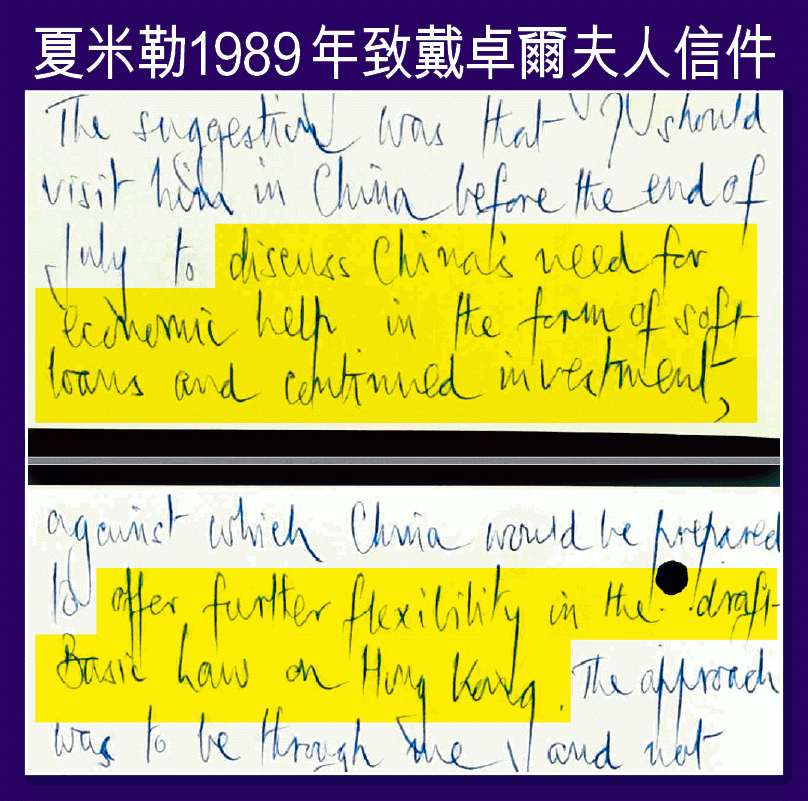 夏米勒1989年致戴卓爾夫人信件
The suggestion was that I should
visit him in China before the end of
July to discuss China's need for
economic help in the form of soft
loans and continued investment,
against which China would be prepared
to offer further flexibility in the draft
Basic Law on Hong Kong. The approach
was to be through me, and not